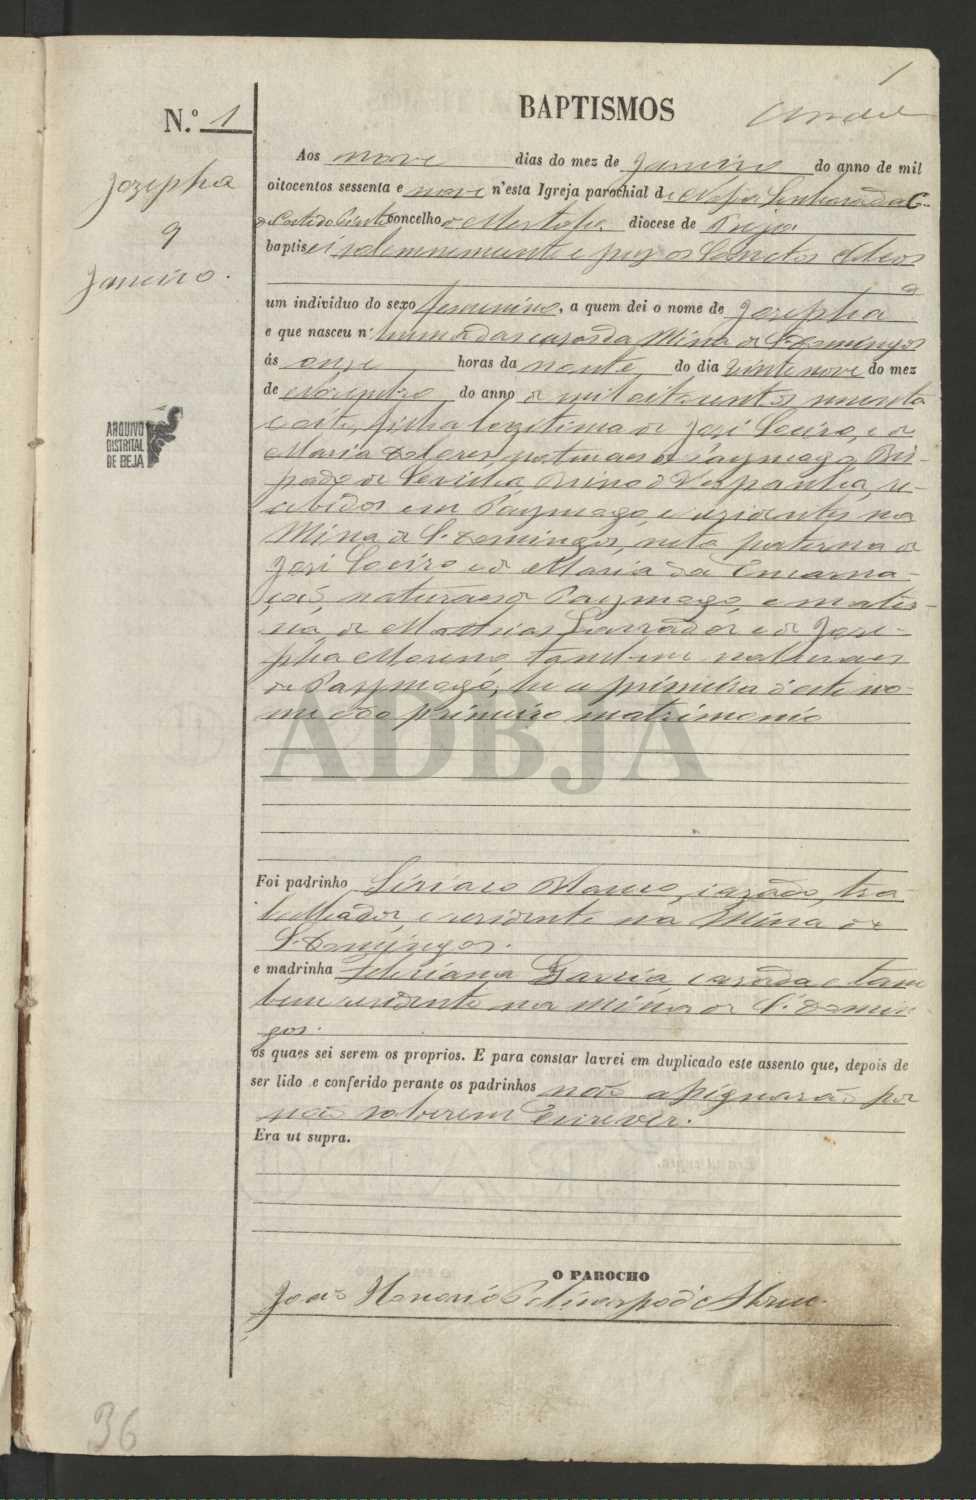 1
BAPTISMOS
N.º 1
Aos nove dias do mez de Janeiro do anno de mil
Jozepha
oitocentos sessenta e nove n'esta Igreja parochial de Nossa Senhora da C.
9
do Corte do Pinto concelho de Mertola diocese de Beja
Janeiro.
baptisei solemnemente e puz os Sanctos Oleos
a
um individuo do sexo femenino, a quem dei o nome de Jozepha
e que nasceu n'huma das cazas da Mina de S. Domingos
ás onze horas da noute do dia vinte nove do mez
de Novembro do anno de mil oito centos secenta
e oito, filha legitima de José Loeiro, e de
Maria Dolores, naturaes de Paymogo, Bis-
pado de Sevilha Reino d'Hespanha, re-
cebidos em Paymogo, e rezidentes na
Mina de S. Domingos, neta paterna de
José Loeiro e de Maria da Encarna-
ção, naturaes de Paymogo, e mater-
na, de Mathias Lavrador e de Joze-
pha Moreno, tambem naturaes
de Paymogo, he a primeira d'este no-
me e do primeiro matrimonio
ARQUIVO
DISTRITAL
DE BEJA
ADBJA
Foi padrinho Ciriaco Marco, cazado, tra-
balhador, e rezidente na Mina de
S. Domingos.
e madrinha Garcia, cazada e tam
bem rezidente na mina de S. Domin
gos.
os quaes sei serem os proprios. E para constar lavrei em duplicado este assento que, depois de
ser lido e conferido perante os padrinhos não asignarão por
não saberem escrever.
Era ut supra.
O PAROCHO
João Honorio d'Abreu.
36